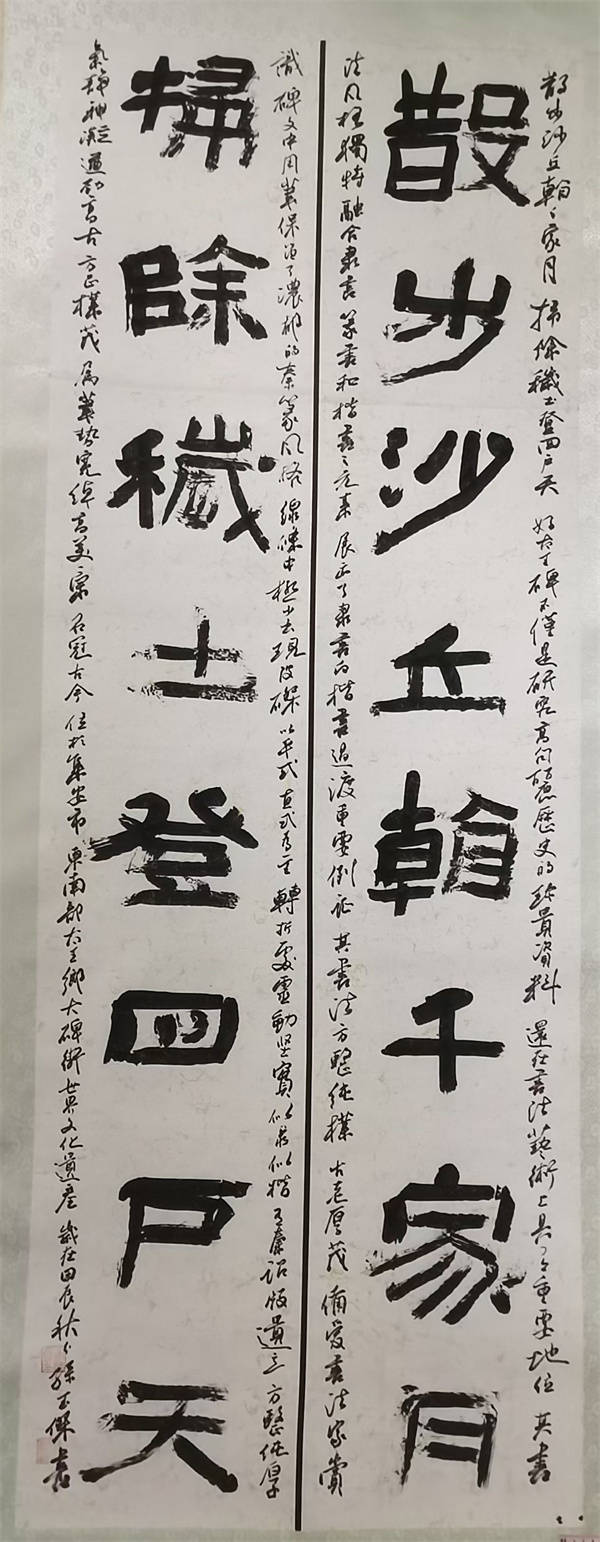 散步沙丘翰千家月 掃除穢土登四户天 好太王碑不僅是研究高句麗歷史的珍貴資料 還在書法藝術上具有重要地位 其書
散步沙丘翰千家月
法风格獨特融合隶書篆書和楷書之元素 展示了隶書向楷書过渡重要例証 其書法方整纯樸 古意厚茂 備受書法家赏
識 碑文中用筆保留了濃郁的秦篆风格 線條中極少出現波磔 以平式直式为主 轉折處靈動坚實 似隶似楷 有秦诏版遺意 方整纯厚
掃除穢土登四户天
氣静神凝遒劲高古 方正樸茂 為筆势完 名冠古今 位於集安市東南部太王鄉大碑街 世界文化遺產 歲在甲辰秋 孫玉傑書